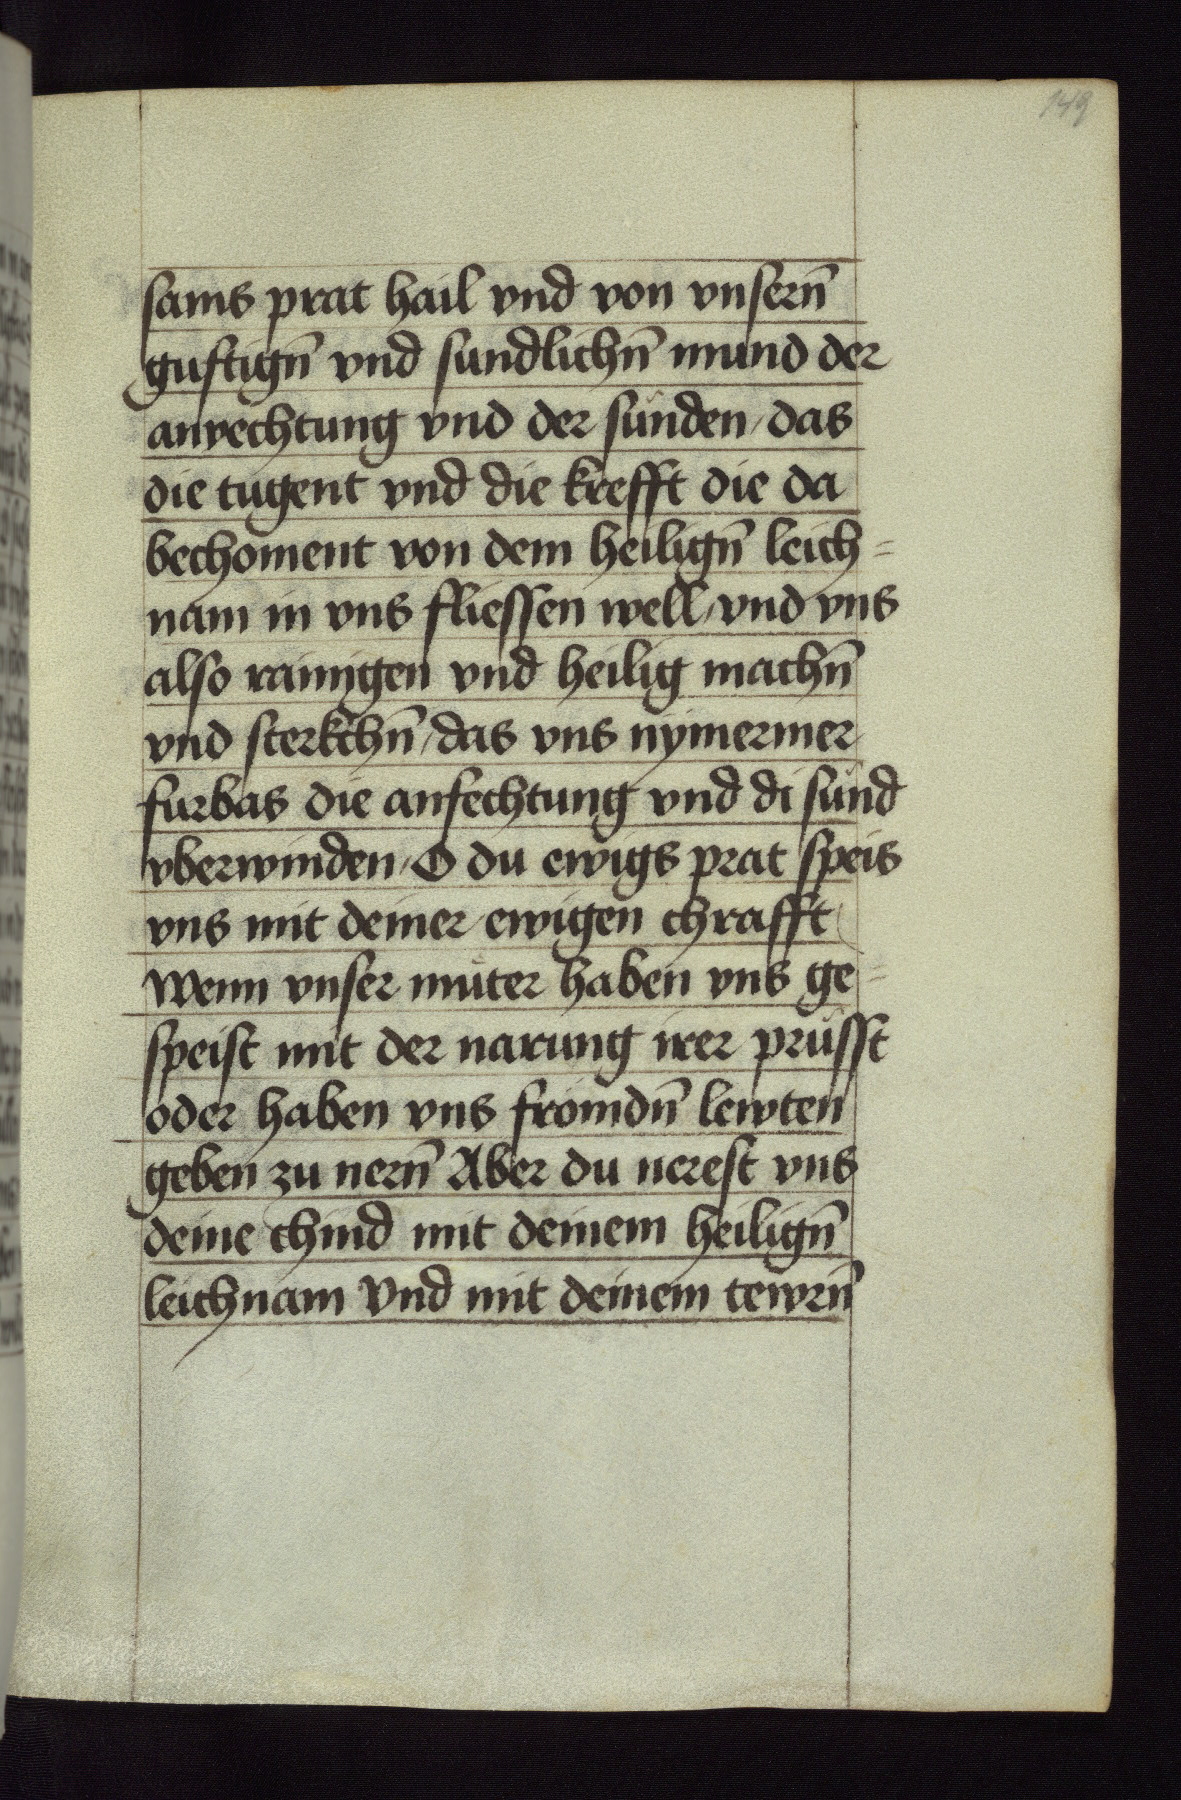 149
sams prat hail vnd von vnsern̄
guftign̄ vnd sundlichn̄ mund der
anvechtung vnd der sünden / das
die tugent vnd die krefft die da
bechoment von dem heilign̄ leich=
nam in vns fliessen well / vnd vns
also rainigen vnd heilig machn̄
vnd sterkchn̄ / das vns nymermer
furbas die anfechtung vnd di sünd
vberwinden / O du ewigs prat speis
vns mit deiner ewigen chrafft
Wenn vnser müter haben vns ge=
speist mit der narung irer prüsst
oder haben vns fromdn̄ lewten
geben zu nern̄ Aber du nerest vns
deine chind mit deinem heilign̄
leichnam Vnd mit deinem tewrn̄